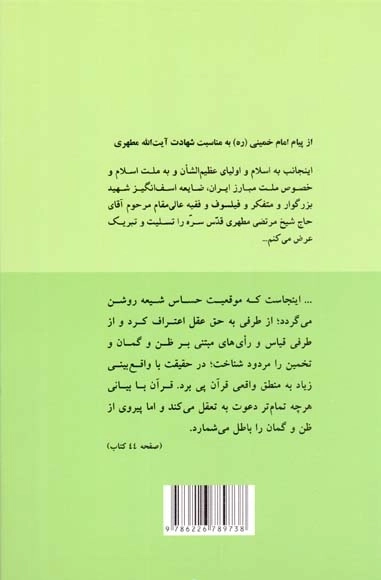 از پیام امام خمینی (ره) به مناسبت شهادت آیت‌الله مطهری
اینجانب به اسلام و اولیای عظیم‌الشأن و به ملت اسلام و
خصوص ملت مبارز ایران، ضایعه اسف‌انگیز شهید
بزرگوار و متفکر و فیلسوف و فقیه عالی‌مقام مرحوم آقای
حاج شیخ مرتضی مطهری قدّس سرّه را تسلیت و تبریک
عرض می‌کنم...
... اینجاست که موقعیت حساس شیعه روشن
می‌گردد؛ از طرفی به حق عقل اعتراف کرد و از
طرفی قیاس و رأی‌های مبتنی بر ظن و گمان و
تخمین را مردود شناخت؛ در حقیقت با واقع‌بینی
زیاد به منطق واقعی قرآن پی برد. قرآن با بیانی
هرچه تمام‌تر دعوت به تعقل می‌کند و اما پیروی از
ظن و گمان را باطل می‌شمارد.
(صفحه ۴۴ کتاب)
9 786226 789738